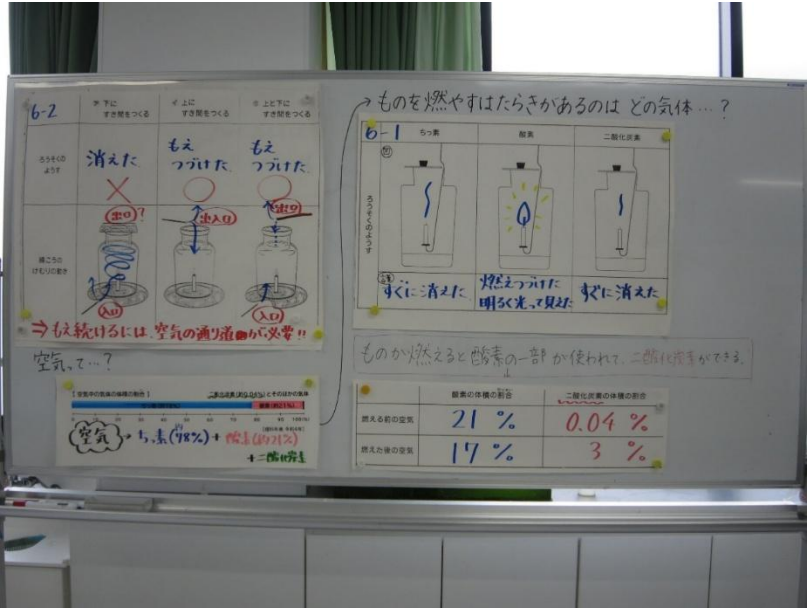 6-2
㋐ 下に
すき間をつくる
㋑ 上に
すき間をつくる
㋒ 上と下に
すき間をつくる
ろうそくの
ようす
消えた
もえ
つづけた
もえ
つづけた
線こうの
けむりの動き
出口?
出入口
出口
入口
入口
⇒もえ続けるには、空気の通り道が必要!!
空気って…?
[空気中の気体の体積の割合]
ちっ素(約78%)
酸素(約21%)
0 10 20 30 40 50 60 70 80 90 100(%)
空気
→ ちっ素(78%)+酸素(約21%)
+二酸化炭素
→ものを燃やすはたらきがあるのは どの気体…?
6-1
ちっ素
酸素
二酸化炭素
ろうそくのようす
すぐに消えた
燃えつづけた
明るく光って見えた
すぐに消えた
ものが燃えると酸素の一部が使われて、二酸化炭素ができる。
酸素の体積の割合
二酸化炭素の体積の割合
燃える前の空気
21 %
0.04 %
燃えた後の空気
17 %
3 %